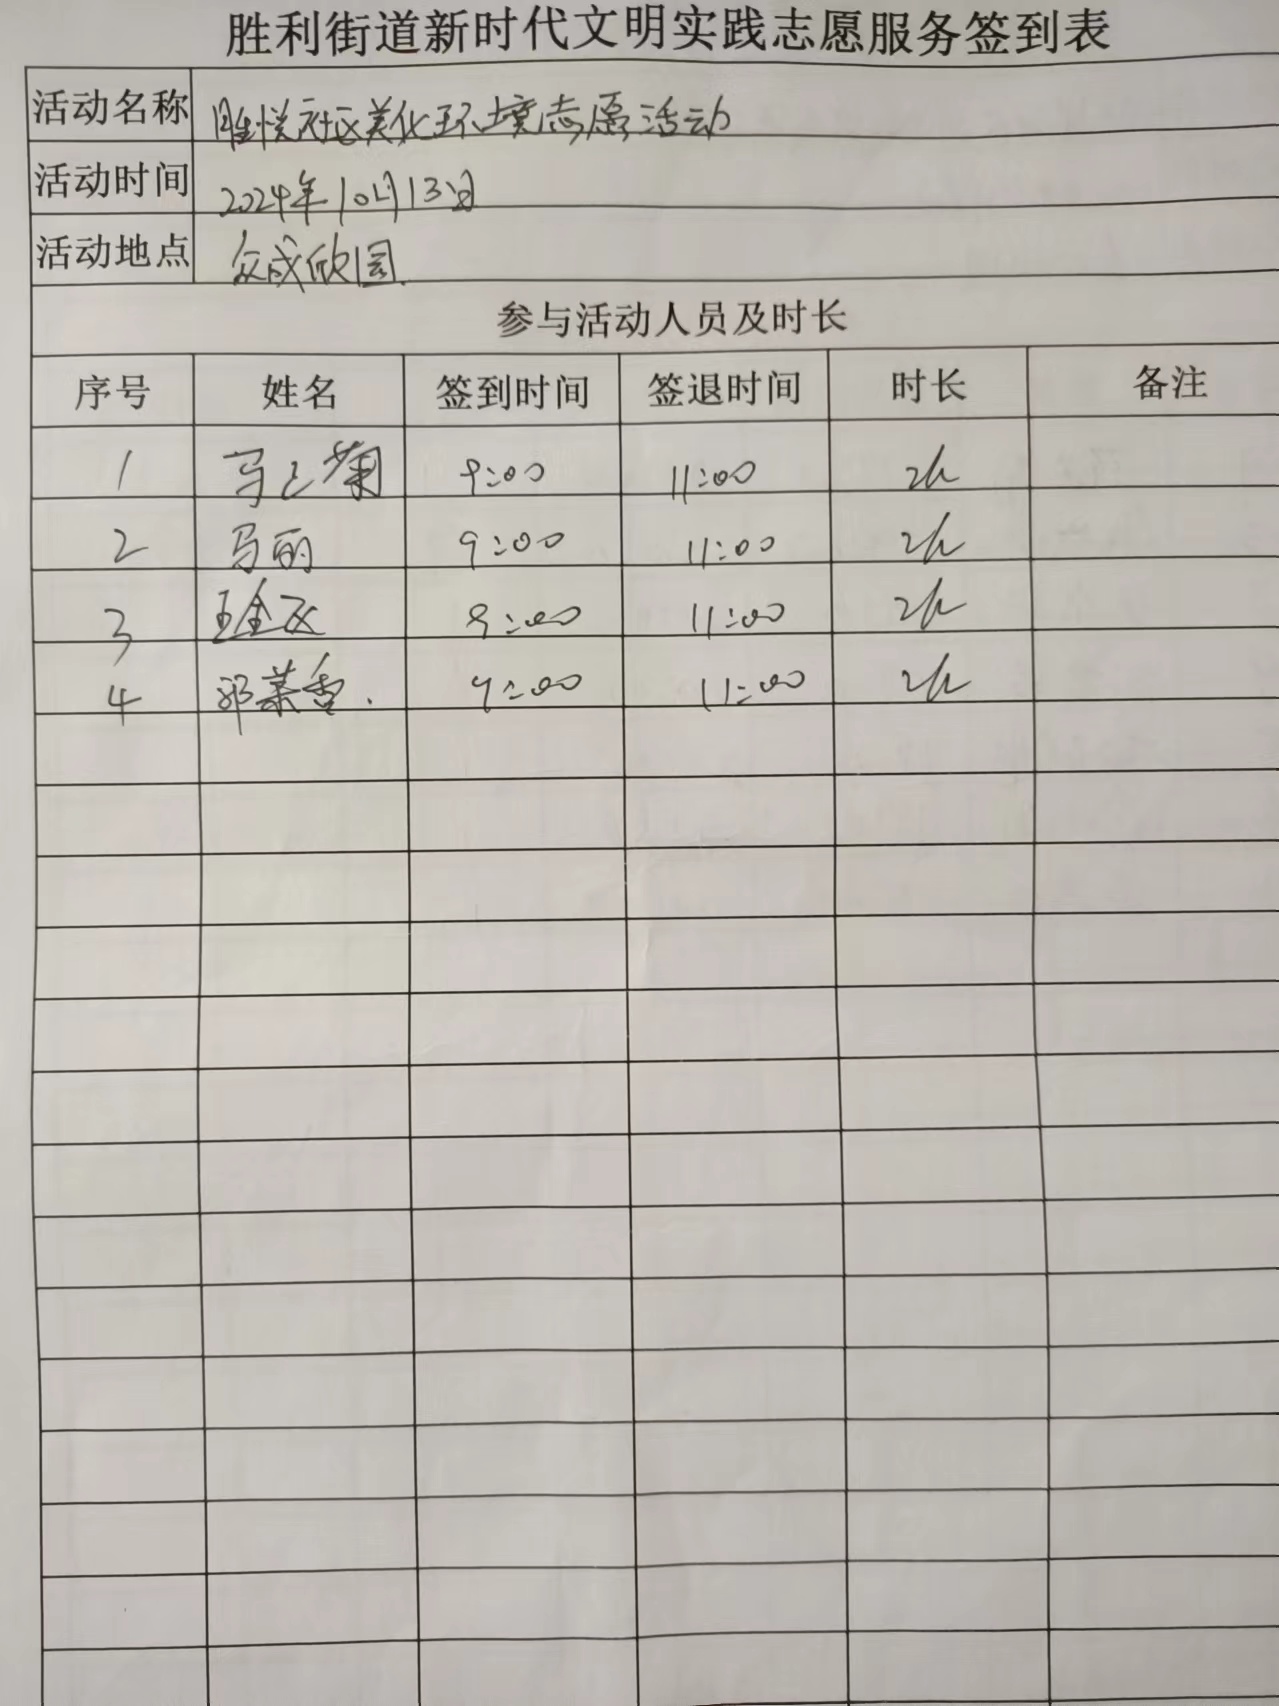 胜利街道新时代文明实践志愿服务签到表
活动名称 胜悦社区美化环境志愿活动
活动时间 2024年10月13日
活动地点 众成欣园
参与活动人员及时长
序号 姓名 签到时间 签退时间 时长 备注
1 马上菊 9:00 11:00 2h
2 马丽 9:00 11:00 2h
3 王金 9:00 11:00 2h
4 郭菜香 9:00 11:00 2h